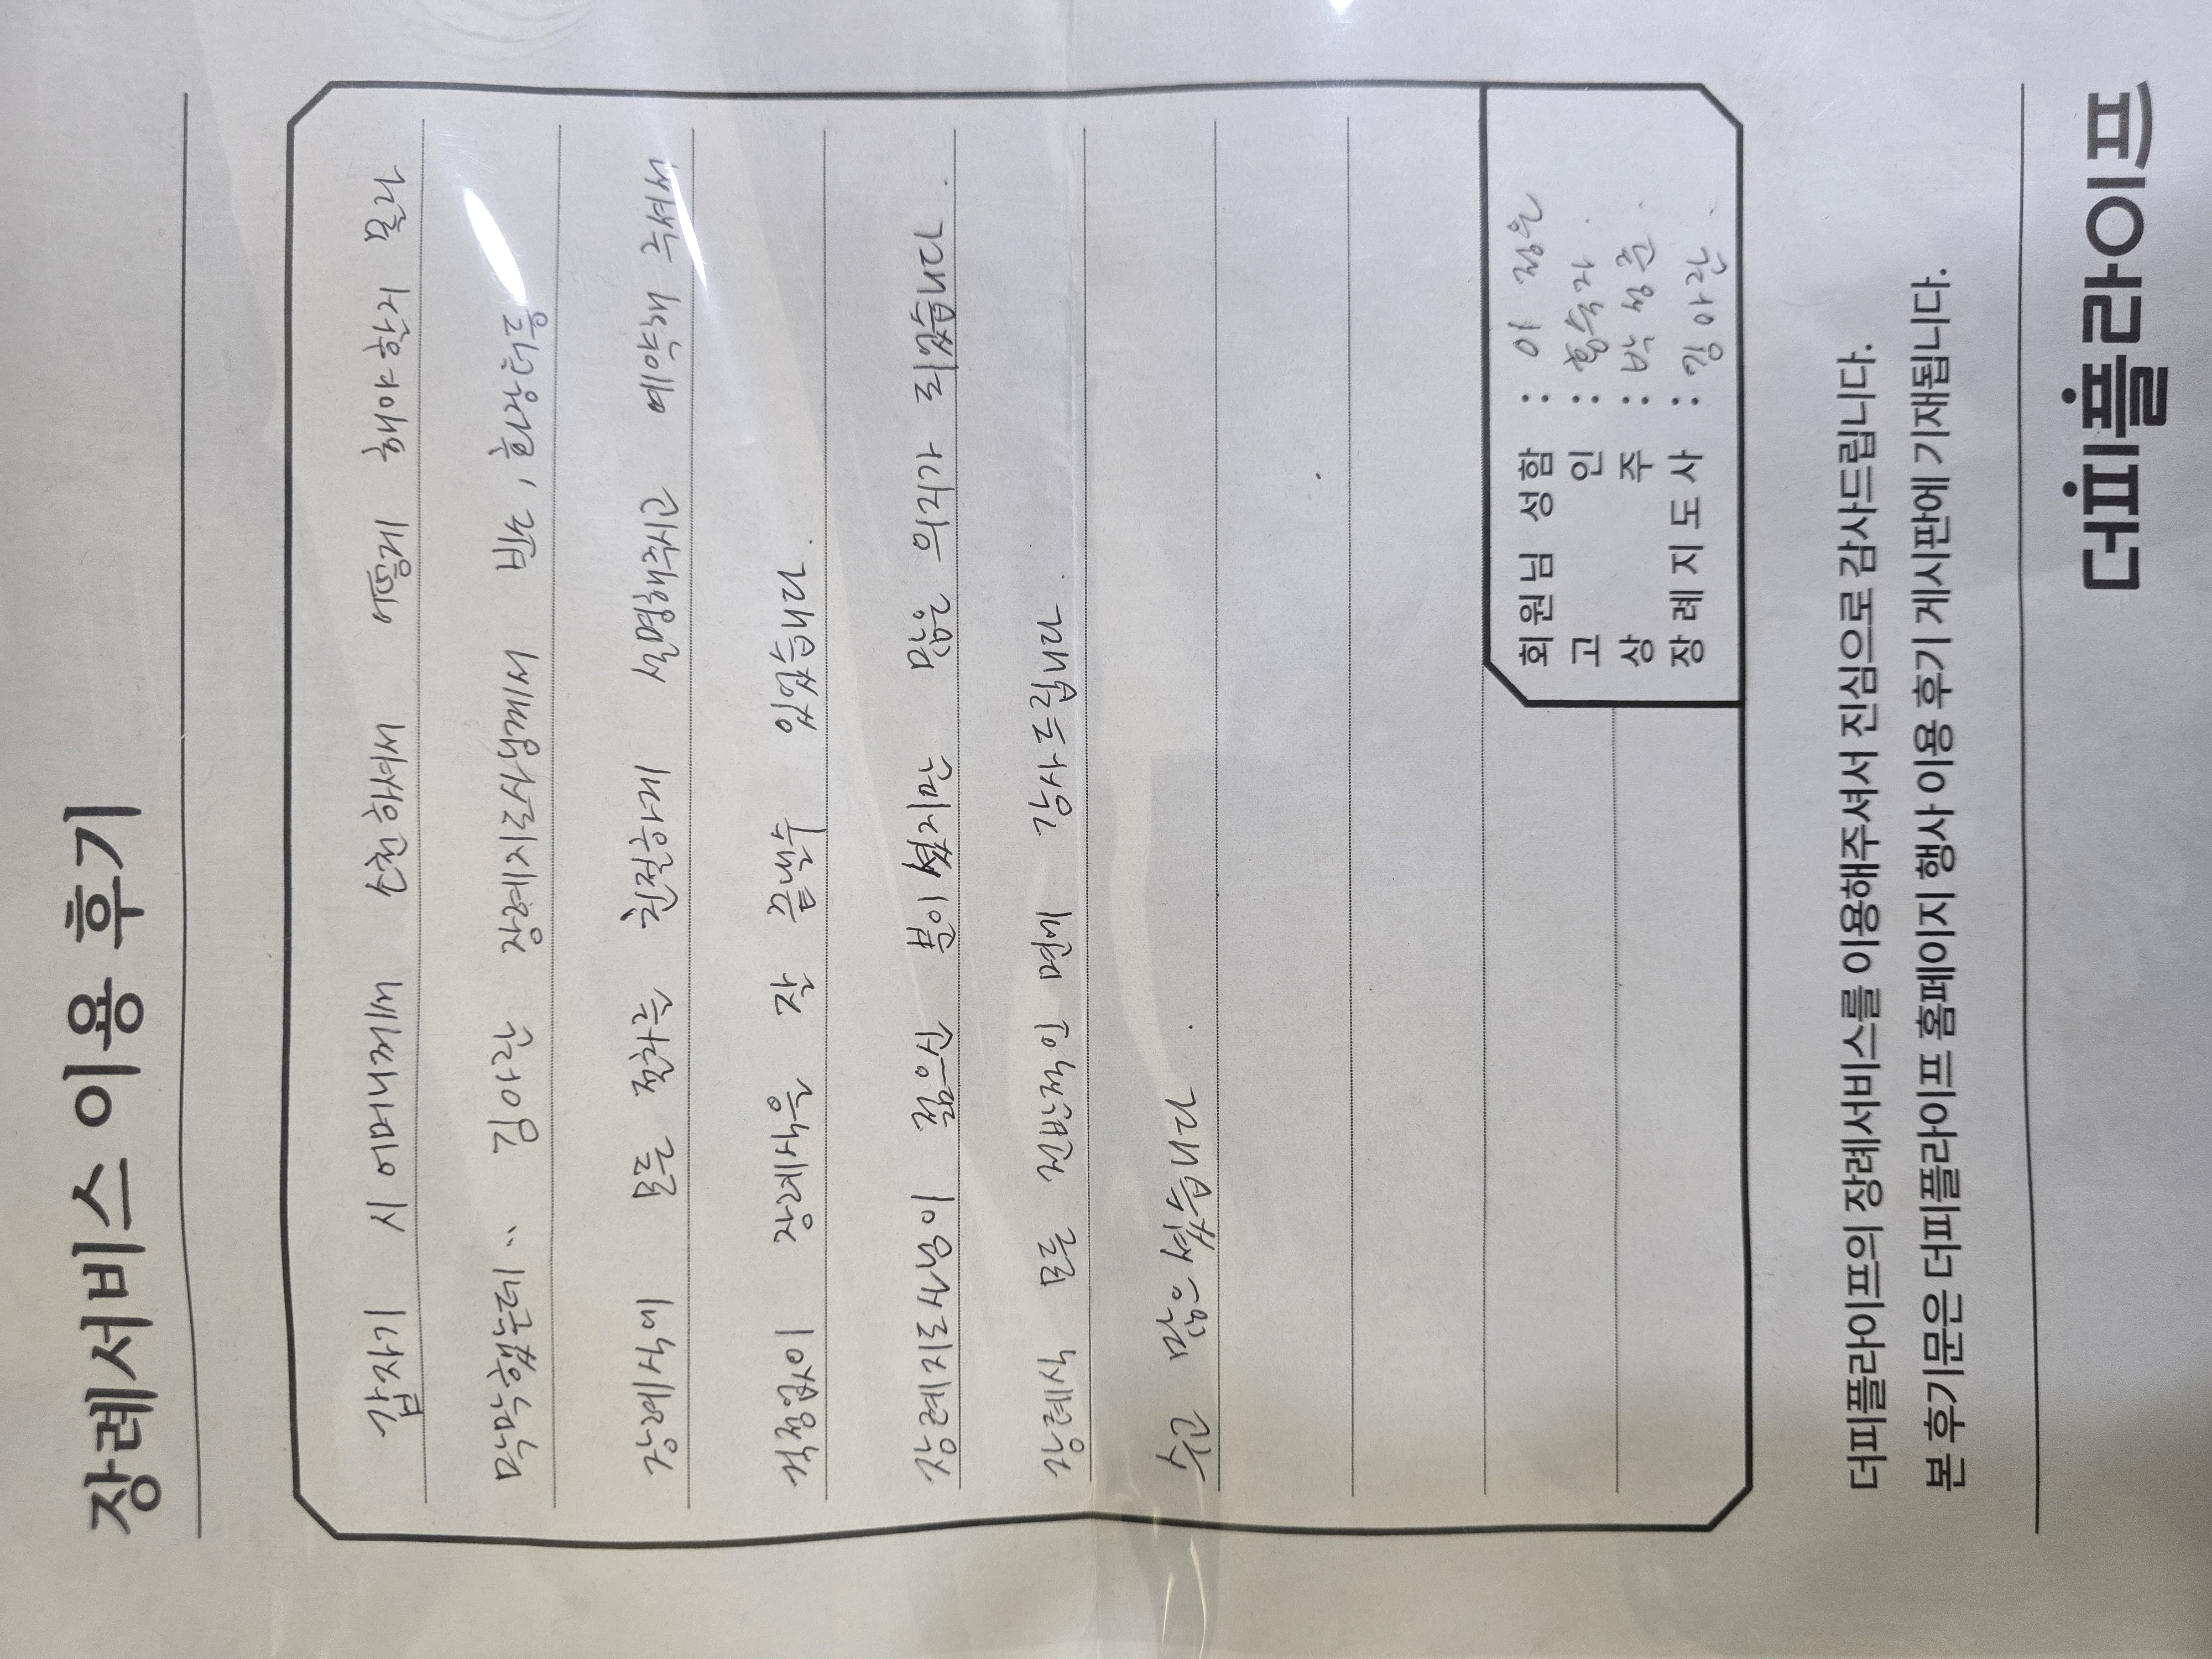 장례서비스 이용 후기
갑자기 시어머니께서 소천하셔서 어떻게 해야할지 몰라
막막했는데.. 김아란 장례지도사님께서 빈소, 화장터등
장례식에 모든 절차를 친절하게 설명해주시고 예약해 주셔서
걱정없이 장례식을 잘 끝낼수 있었습니다.
장례지도사님이 젊으신 분이셨지만 많은 의지가 되었습니다.
장례식 모든 전반적인 면에 감사드립니다.
수고 많으셨습니다.
회원님 성함 : 이 정은
고 인 : 황숙자.
상 주 : 박 성준.
장례지도사 : 김아란.
더피플라이프의 장례서비스를 이용해주셔서 진심으로 감사드립니다.
본 후기문은 더피플라이프 홈페이지 행사 이용 후기 게시판에 기재됩니다.
더피플라이프